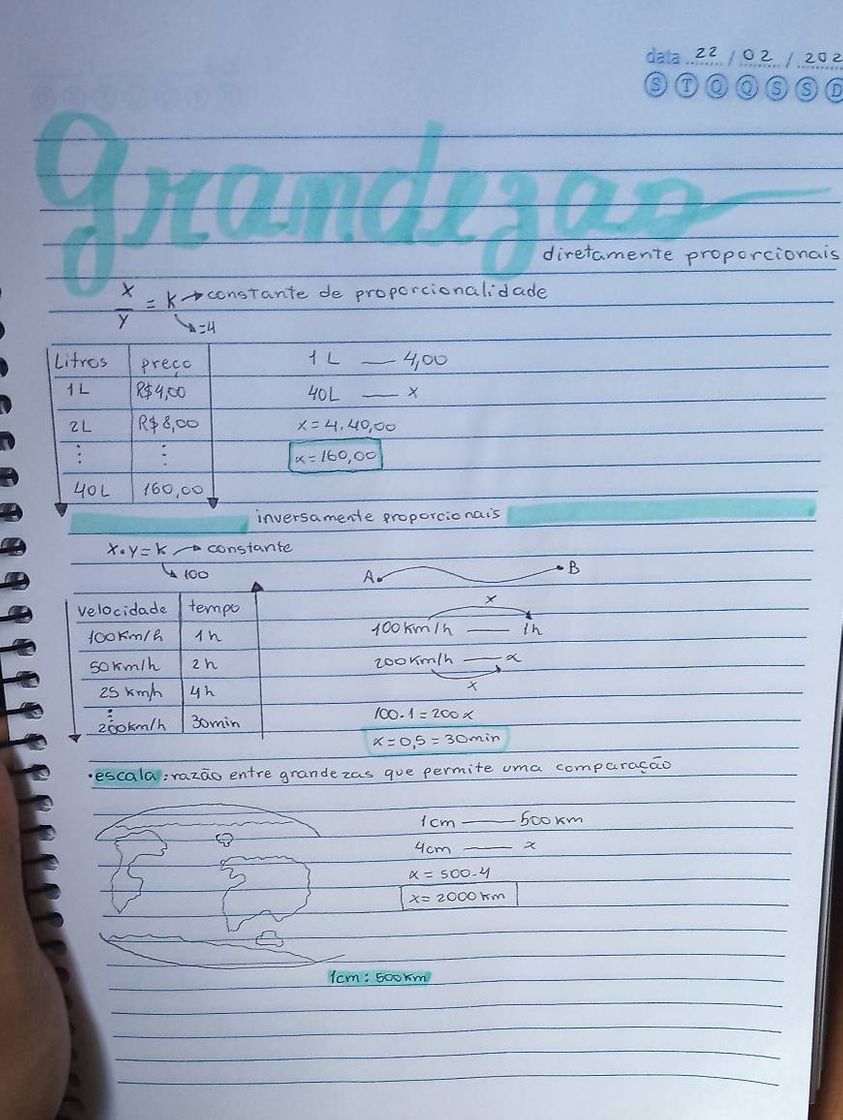 data 22 / 02 / 202
S T Q Q S S D
Grandezas
diretamente proporcionais
x/y = k → constante de proporcionalidade
=4
Litros preço
1L R$4,00
2L R$8,00
⋮ ⋮
40L 160,00
1L — 4,00
40L — x
x=4.40,00
x=160,00
inversamente proporcionais
x.y=k → constante
100
A B
velocidade tempo
100km/h 1h
50km/h 2h
25 km/h 4h
⋮
200km/h 30min
x
100km/h — 1h
200km/h — x
x
100.1=200x
x=0,5=30min
•escala: razão entre grandezas que permite uma comparação
1cm — 500km
4cm — x
x=500.4
x=2000km
1cm: 500km